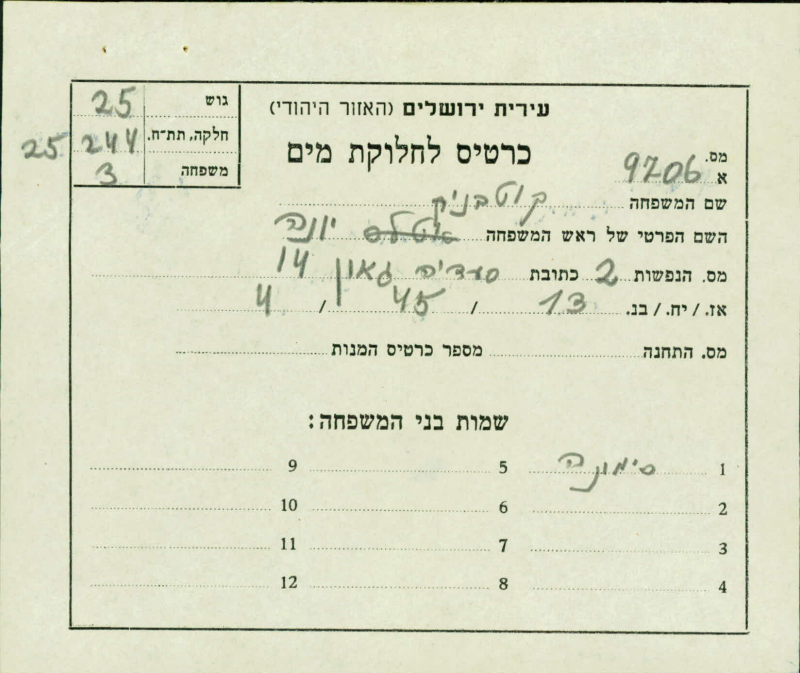 עירית ירושלים (האזור היהודי)
כרטיס לחלוקת מים
גוש 25
חלקה, תת־ח. 244 25
משפחה 3
מס. א 9706
שם המשפחה קוטבניק
השם הפרטי של ראש המשפחה יונה
מס. הנפשות 2 כתובת סעדיה גאון 14
אז. / יח. / בנ. 13 / 45 / 4
מס. התחנה מספר כרטיס המנות
שמות בני המשפחה:
1 סימונה 5 9
2 6 10
3 7 11
4 8 12